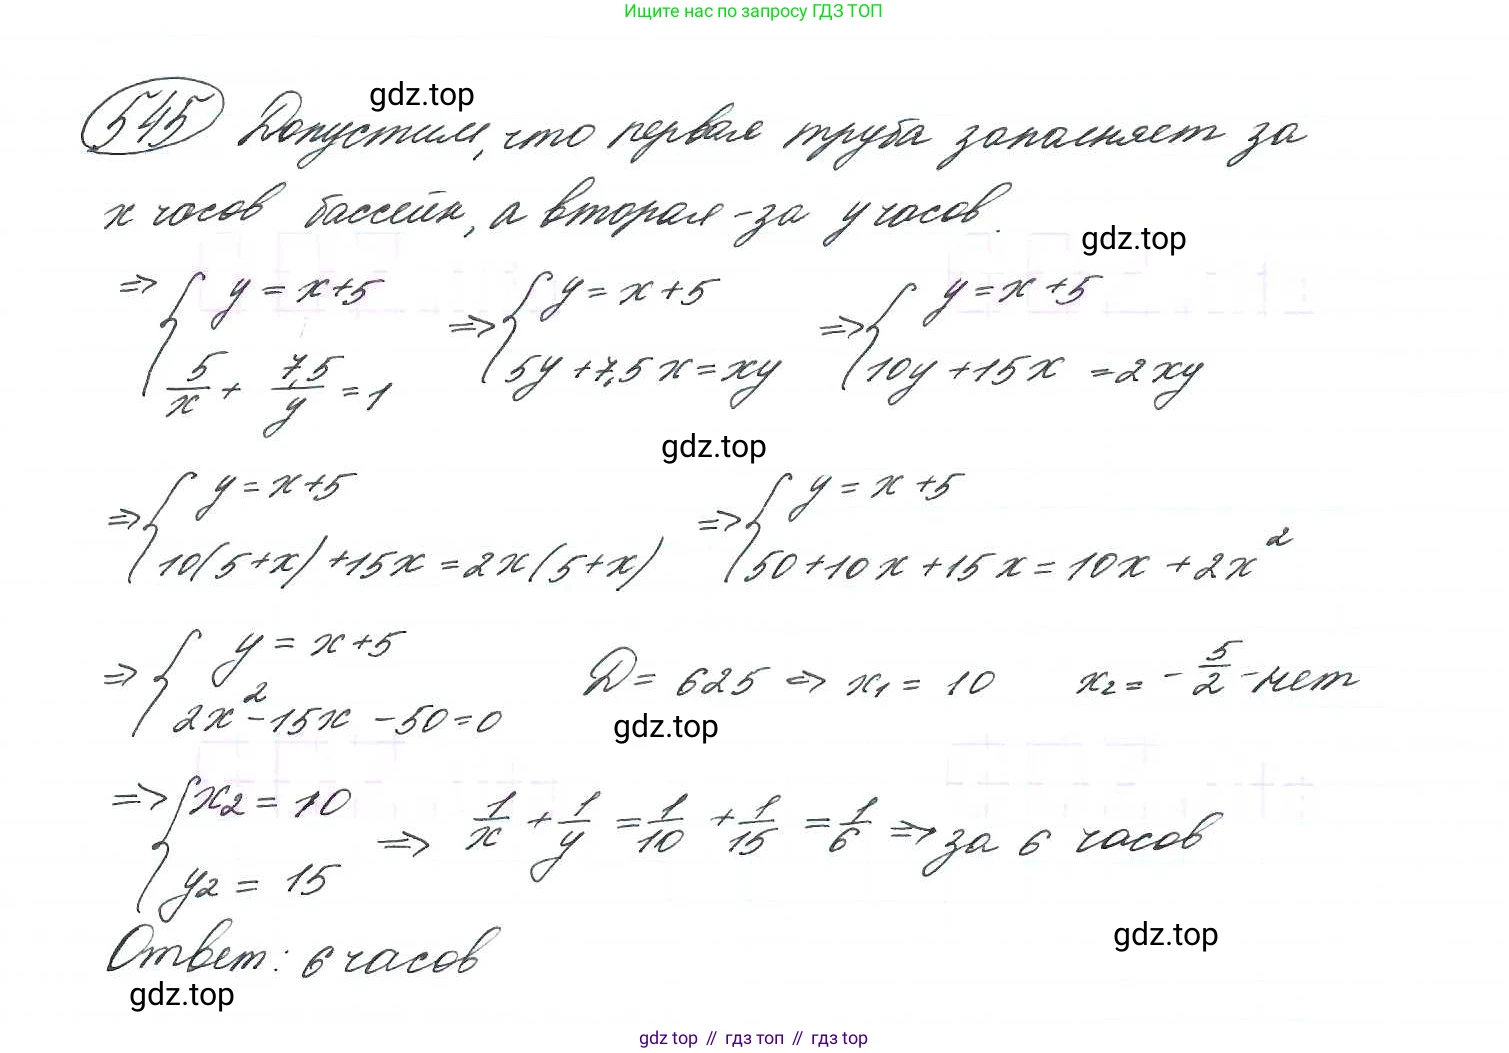 Ищите нас по запросу ГДЗ ТОП
gdz.top
545 Допустим, что первая труба заполняет за
x часов бассейн, а вторая - за y часов.
gdz.top
⇒ { y = x+5 ; 5/x + 7,5/y = 1 ⇒ { y = x+5 ; 5y + 7,5x = xy ⇒ { y = x+5 ; 10y + 15x = 2xy
gdz.top
⇒ { y = x+5 ; 10(5+x) + 15x = 2x(5+x) ⇒ { y = x+5 ; 50 + 10x + 15x = 10x + 2x²
⇒ { y = x+5 ; 2x² - 15x - 50 = 0 D = 625 ⇒ x₁ = 10 x₂ = - 5/2 - нет
gdz.top
⇒ { x₂ = 10 ; y₂ = 15 ⇒ 1/x + 1/y = 1/10 + 1/15 = 1/6 ⇒ за 6 часов
Ответ: 6 часов
gdz.top
gdz.top
gdz top // гдз топ // gdz top